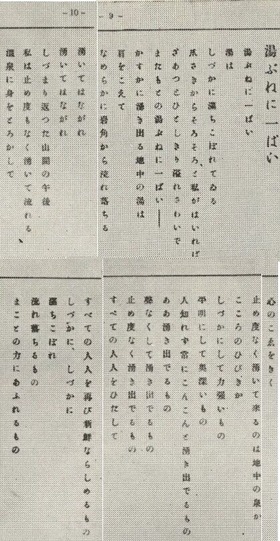 - 9 -
湯ぶねに一ぱい
湯ぶねに一ぱい
湯は
しづかに滿ちこぼれてゐる
爪さきからそろそろと私がはいれば
ざあつとひとしきり溢れさわいで
またもとの湯ぶねに一ぱい――
かすかに湧き出る地中の湯は
肩をこえて
なめらかに岩角から流れ落ちる
- 10 -
湧いてはながれ
湧いてはながれ
しづまり返つた山間の午後
私は止め度もなく湧いて流れる
温泉に身をとろかして
心のこゑをきく
止め度なく湧いて來るのは地中の泉か
こころのひびきか
しづかにして力強いもの
平明にして奥深いもの
人知れず常にこんこんと湧き出でるもの
ああ湧き出でるもの
聲なくして湧き出でるもの
止め度なく湧き出でるもの
すべての人人をひたして
すべての人人を再び新鮮ならしめるもの
しづかに、しづかに
滿ちこぼれ
流れ落ちるもの
まことの力にあふれるもの